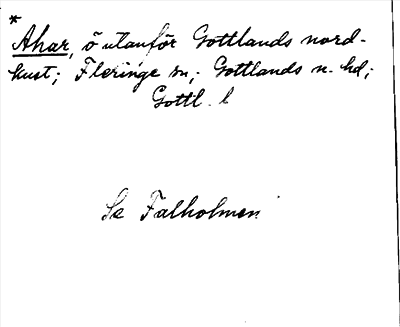 *
Ahar, ö utanför Gottlands nord-
kust; Fleringe sn; Gottlands n. hd;
Gottl. l
Se Falholmen